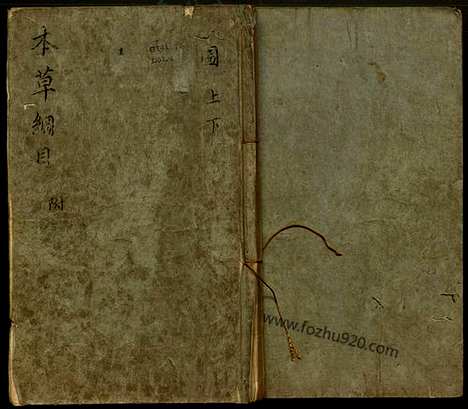 本草綱目
附
圖 上下
www.fozhu920.com